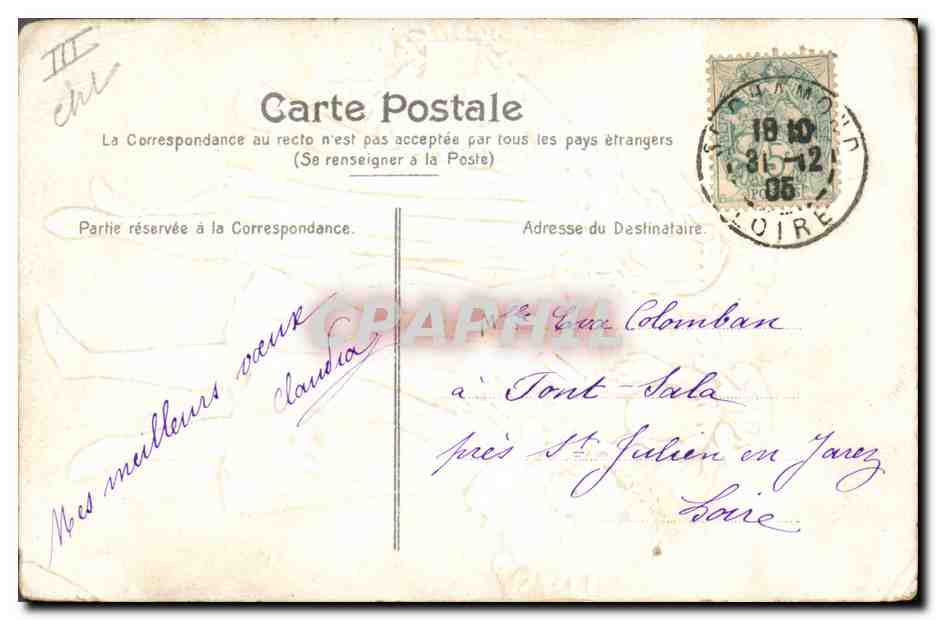 III
Carte Postale
La Correspondance au recto n'est pas acceptée par tous les pays étrangers
(Se renseigner à la Poste)
ST CHAMOND
18 10
31 -12
05
LOIRE
5
Partie réservée à la Correspondance.
Adresse du Destinataire.
Mes meilleurs vœux
Claudia
CPAPHIL
Mlle Eva Colomban
à Font-Sala
près St Julien en Jarez
Loire